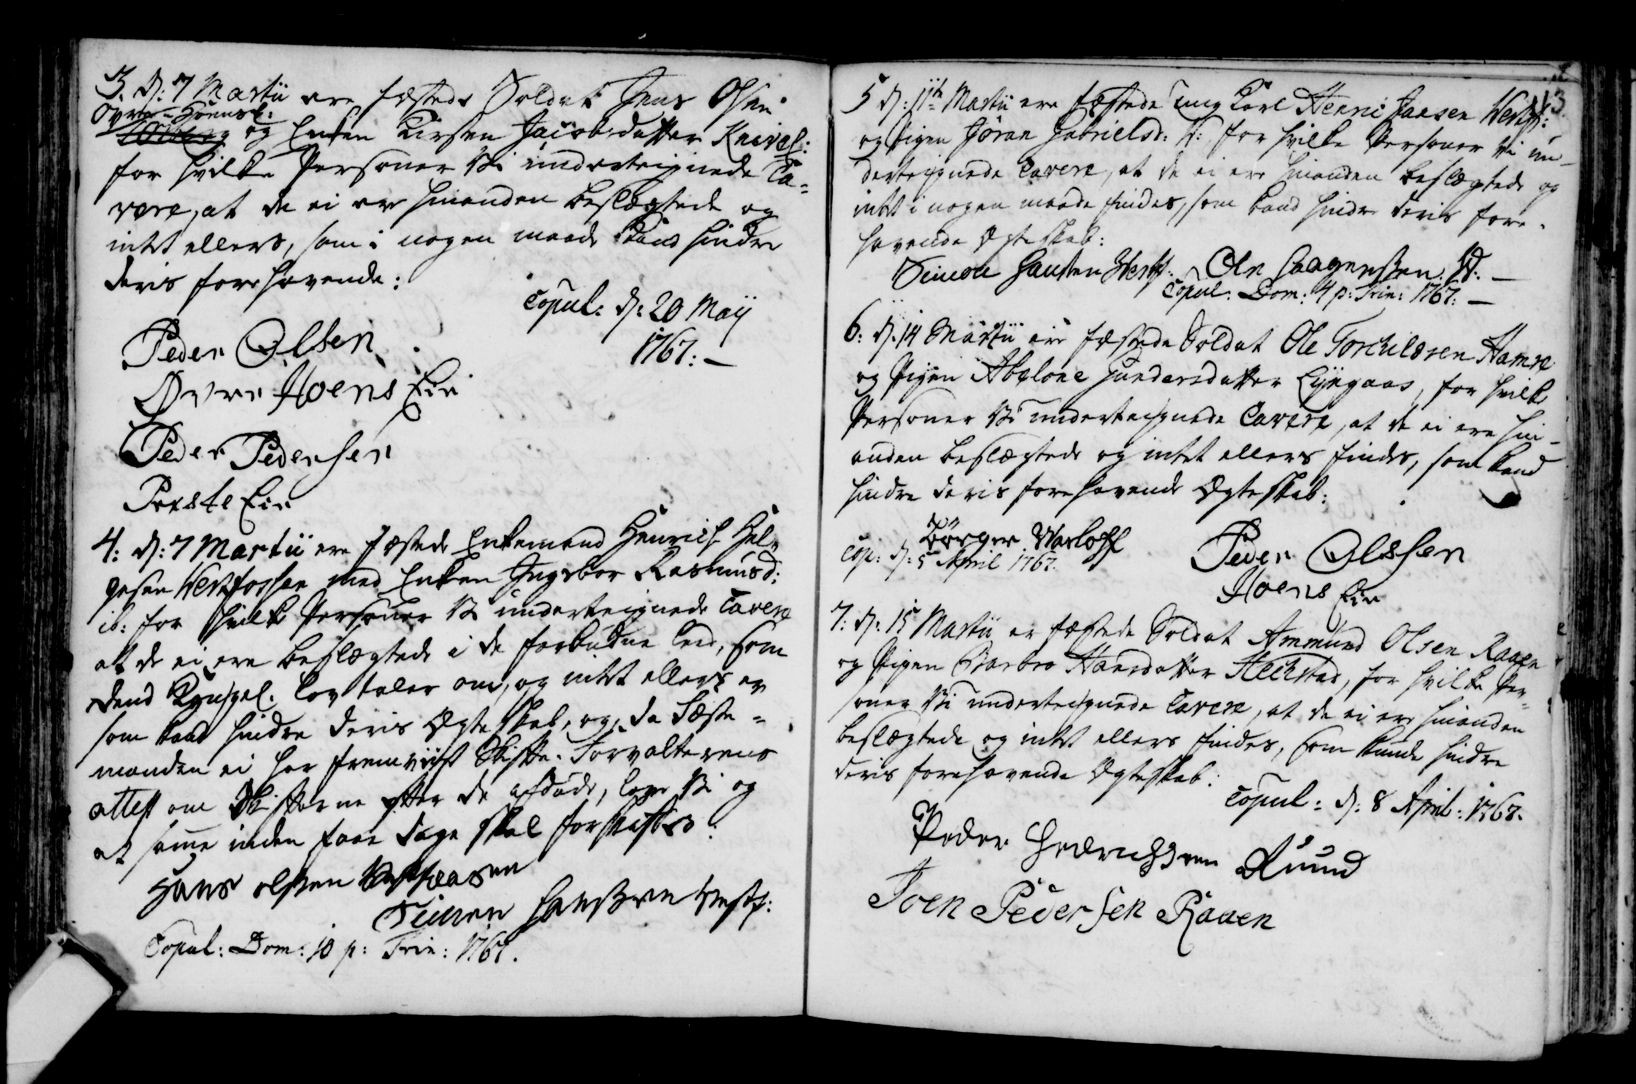 3. d: 7 Martii ere fæstede Soldat Jens Olsen
Øvre-Hoensl:
og Enken Kirsten Jacobsdatter Knivel:
for hvilke Personer Vi undertegnede Ca-
vere, at de ei ere hinanden beslægtede og
intet ellers, som i nogen maade kand hindre
deris forehavende:
Copul: d: 20 Maÿ
1767. —
Peder Olsen
Øvre Hoens Eie
Peder Pedersen
Eie
4: d: 7 Martii ere fæstede Enkemand Henrich Hel-
gesen Vestfossen med Enken Ingebor Rasmusd:
ib: for hvilke Personer Vi undertegnede Cavere
at de ei ere beslægtede i de forbudne leed, som
dend Kongel: lov taler om, og intet ellers er
som kand hindre deris Ægteskab, og da Fæste-
manden ei har fremviist Skifte-Forvalterens
attest om Skifterne efter de afdøde, love Vi og
at same inden faae dage skal forskaffes:
Hans olsen
Simen Hanssen Vestf:
Copul: Dom: 10 p: Trin: 1767.
113
5 d: 11te Martii ere fæstede Ung Karl Henric Hansen Vestf:
og Pigen Jøran Gabrielsd: for hvilke Personer Vi un-
dertegnede Cavere, at de ei ere hinanden beslægtede og
intet i nogen maade findes, som kand hindre deris fore-
havende Ægteskab:
Simon Hansen Vestf: Ole Haagenssen Id. —
Copul: Dom: 4 p: Trin: 1767. —
6: d. 14 Martii ere fæstede Soldat Ole Torchildsen Hamre
og Pigen Abelone Gundersdatter Lyngaas, for hvilke
Personer Vi undertegnede Cavere, at de ei ere hin-
anden beslægtede og intet ellers findes, som kand
hindre deris forehavende Ægteskab:
Børger Warloff
Cop: d: 5 April 1767.
Peder Olssen
Hoens Eie
7: d: 15 Martii er fæstede Soldat Ammund Olsen Raaen
og Pigen Barbro Hansdatter Hedstad, for hvilke Per-
soner Vi undertegnede Cavere, at de ei ere hinanden
beslægtede og intet ellers findes, som kunde hindre
deris forehavende Ægteskab:
Copul: d: 8 April: 1767.
Peder Hedrichsen Ruud
Joen Pedersen Raaen